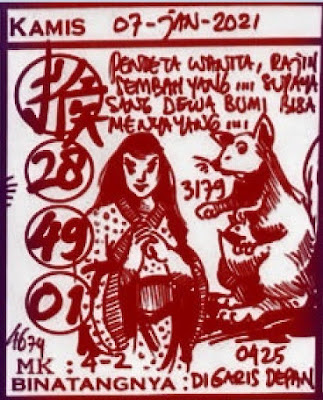 KAMIS 07-JAN-2021
PENDETA WANITA, RAJIN
SEMBAHYANG INI SUPAYA
SANG DEWA BUMI BISA
MENYAYANG INI
猴
28
3179
49
01
4679
MK : 4-2
0425
BINATANGNYA : DIGARIS DEPAN